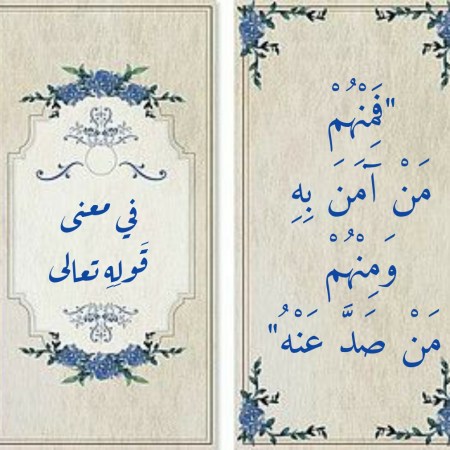 في معنى
قَولِهِ تعالى
"فَمِنْهُمْ
مَنْ آَمَنَ بِهِ
وَمِنْهُمْ
مَنْ صَدَّ عَنْهُ"